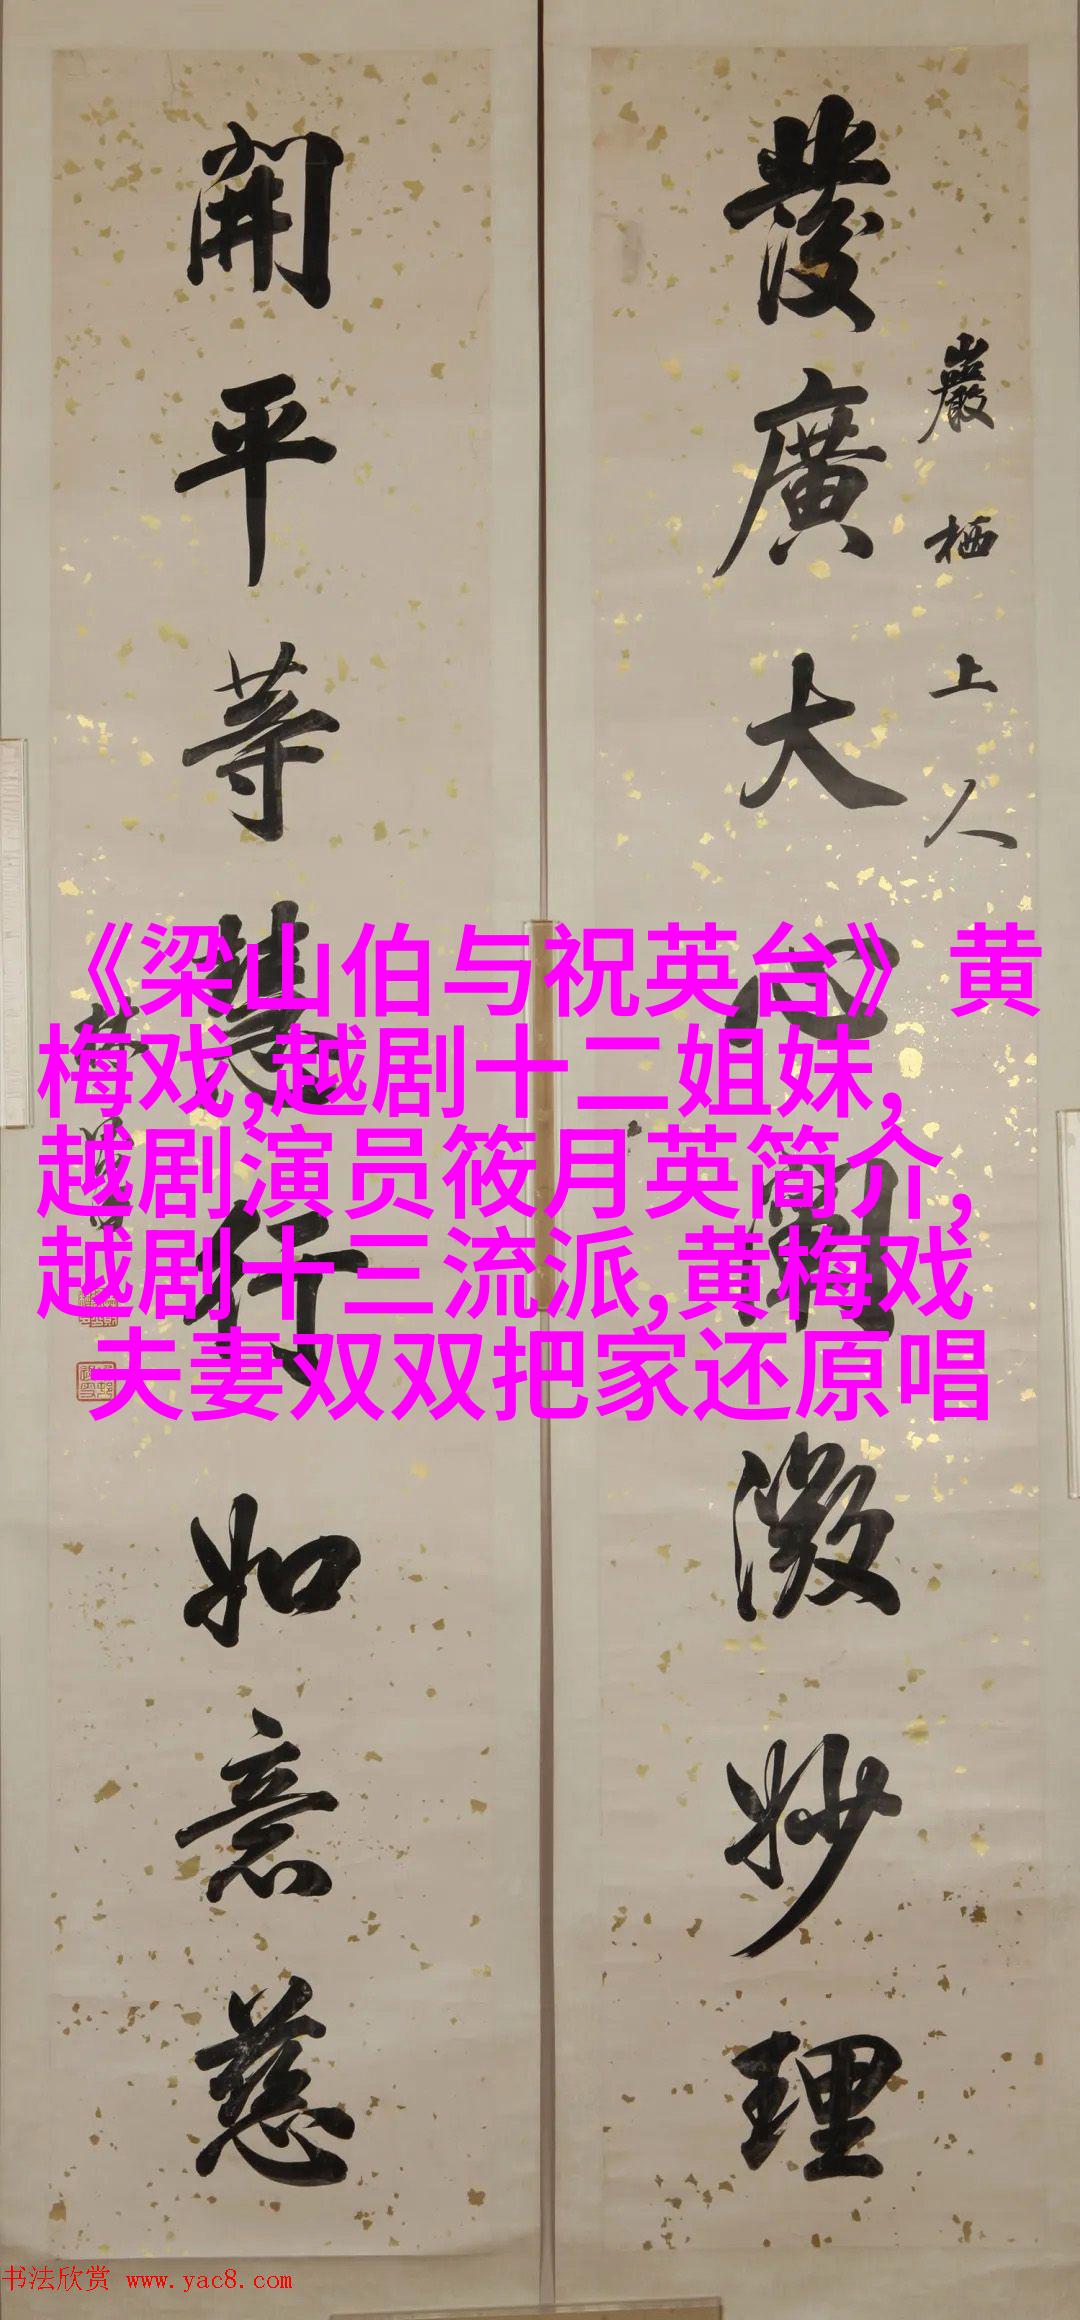 巖栖上人
發廣大心微妙理
開平等慧行如意慈
《梁山伯与祝英台》黄
梅戏,越剧十二姐妹,
越剧演员筱月英简介,
越剧十三流派,黄梅戏
夫妻双双把家还原唱
书法欣赏 www.yac8.com